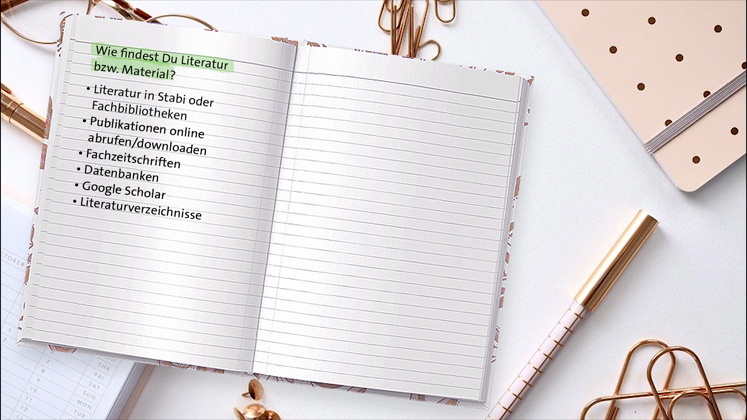 Wie findest Du Literatur
bzw. Material?
• Literatur in Stabi oder
Fachbibliotheken
• Publikationen online
abrufen/downloaden
• Fachzeitschriften
• Datenbanken
• Google Scholar
• Literaturverzeichnisse
THR
FRI
SAT
SUN
MON
TUE